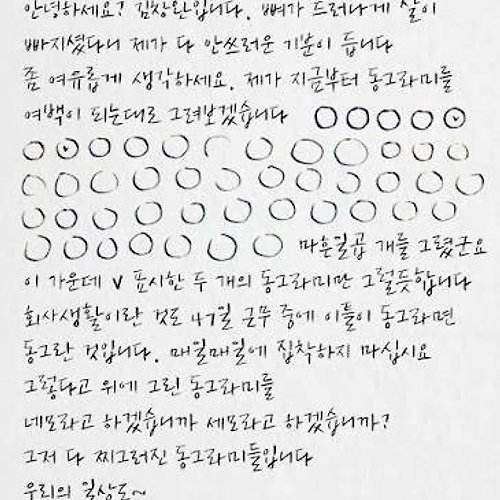 안녕하세요? 김창완입니다. 뼈가 드러나게 살이
빠지셨다니 제가 다 안쓰러운 기분이 듭니다
좀 여유롭게 생각하세요. 제가 지금부터 동그라미를
여백이 되는대로 그려보겠습니다
마흔일곱 개를 그렸군요
이 가운데 v 표시한 두 개의 동그라미만 그럴듯합니다
회사생활이란 것도 47일 근무 중에 이틀이 동그라면
동그란 것입니다. 매일매일에 집착하지 마십시요
그렇다고 위에 그린 동그라미를
네모라고 하겠습니까 세모라고 하겠습니까?
그저 다 찌그러진 동그라미들입니다
우리의 일상도~